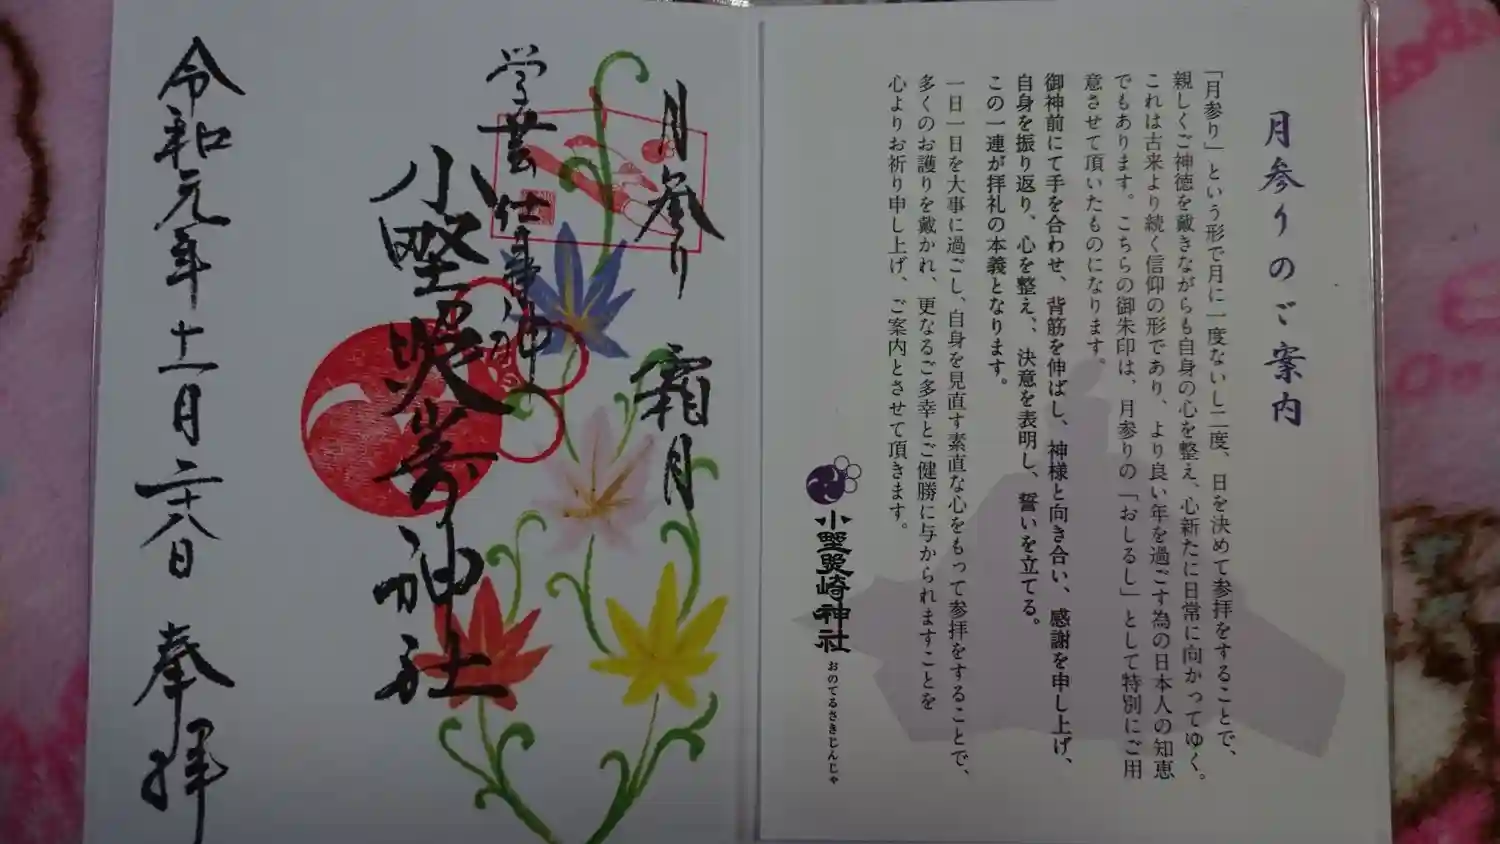 月参りのご案内
「月参り」という形で月に一度ないし二度、日を決めて参拝をすることで、
親しくご神徳を戴きながらも自身の心を整え、心新たに日常に向かってゆく。
これは古来より続く信仰の形であり、より良い年を過ごす為の日本人の知恵
でもあります。こちらの御朱印は、月参りの「おしるし」として特別にご用
意させて頂いたものになります。
御神前にて手を合わせ、背筋を伸ばし、神様と向き合い、感謝を申し上げ、
自身を振り返り、心を整え、、決意を表明し、誓いを立てる。
この一連が拝礼の本義となります。
一日一日を大事に過ごし、自身を見直す素直な心をもって参拝をすることで、
多くのお護りを戴かれ、更なるご多幸とご健勝に与かられますことを
心よりお祈り申し上げ、ご案内とさせて頂きます。
小野照崎神社
おのてるさきじんじゃ
月参り 霜月
学芸仕事の神
小野照崎神社
令和元年十一月二十八日 奉拝